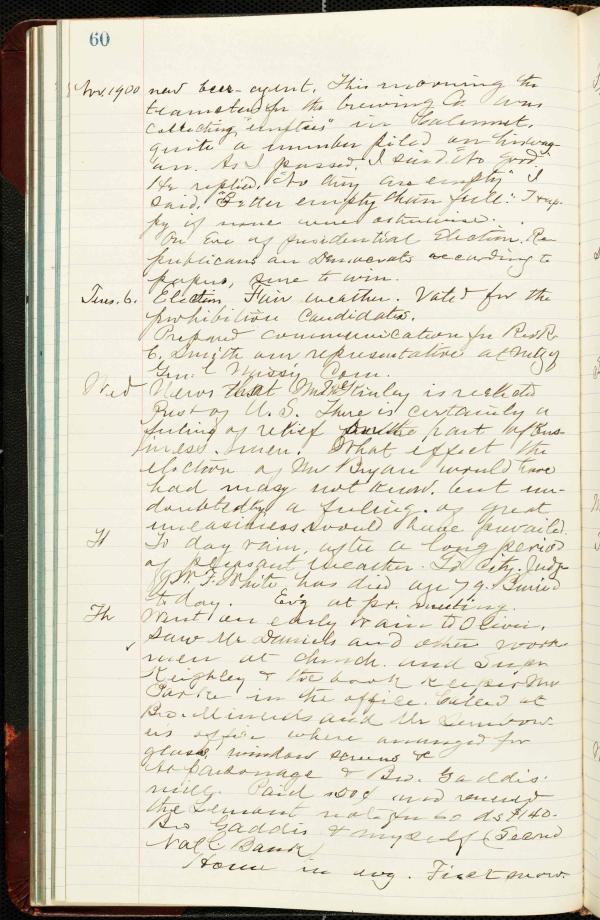 60
Nov. 1900 new beer-agent. This morning the
teamster for the brewing Co was
collecting "empties" in Calumet,
quite a number piled on his wag-
on. As I passed, I said "No good"
He replied, "No they are empty" I
said, "Better empty than full." Hap-
py if none were otherwise.
On Eve of presidential Election, Re-
publicans and Democrats according to
papers, sure to win.
Tues. 6. Election Fair weather. Voted for the
prohibition candidates.
Prepared communication for Rev R.
C. Smith our representative at Mtg of
Gen. C Missy. Com.
Wed News that McKinley is reelected
Prest of U.S. There is certainly a
feeling of relief on the part of bus-
iness men. What effect the
election of Mr Bryan would have
had may not know. but un-
doubtedly a feeling of great
uneasiness would have prevailed.
To day rain, after a long period
of pleasant weather. To City. Judge
J. W. F. White has died age 79. Buried
to day. Evg at pr. meeting.
Th Went on early train to Oliver.
Saw Mr Daniels and other work-
men at church. and Supr
Keighley & the book keeper Mr
Parke in the office. Called at
Bro. and Mr
office where arranged for
glass, window screens &
At parsonage & Bro. Gaddis'
mill. Paid 500 and renewed
the Lemont note for 60 ds \$1140.
Bro Gaddis & myself (Second
Natl. Bank)
Home in evg. First snow.